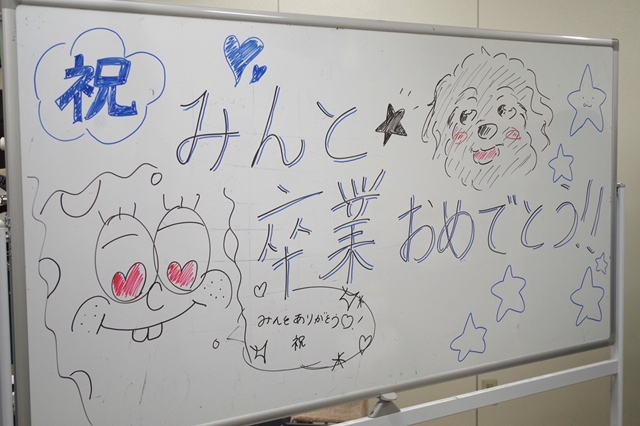 祝
みんと★
卒業おめでとう!!
みんとありがとう♡
祝